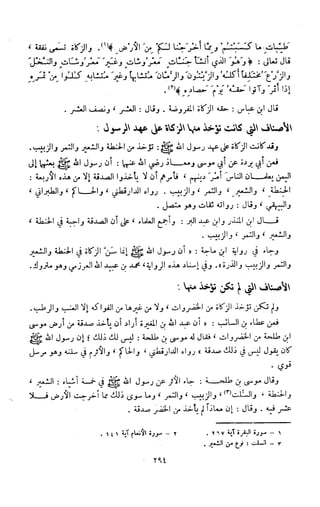 طيبات ما كسبتم ومما أخرجنا لكم من الأرض ﴾(١). والزكاة تسمى نفقة ،
قال تعالى : ﴿ وهو الذي أنشأ جنات معروشات وغير معروشات والنخل
والزرع مختلفاً أكله والزيتون والرمان متشابهاً وغير متشابه كلوا من ثمره
إذا أثمر وآتوا حقه يوم حصاده ﴾(٢).
قال ابن عباس : حقه الزكاة المفروضة . وقال : العشر ، ونصف العشر .
الأصناف التي كانت تؤخذ منها الزكاة على عهد الرسول :
وقد كانت الزكاة على عهد رسول الله ﷺ تؤخذ من الحنطة والشعير والتمر والزبيب.
فعن أبي بردة عن أبي موسى ومعاذ رضي الله عنهما : أن رسول الله ﷺ بعثهما إلى
اليمن يعلمان الناس أمر دينهم ، فأمرهم أن لا يأخذوا الصدقة إلا من هذه الأربعة :
الحنطة ، والشعير ، والتمر ، والزبيب . رواه الدارقطني ، والحاكم ، والطبراني ،
والبيهقي ، وقال : رواته ثقات وهو متصل .
قال ابن المنذر وابن عبد البر : وأجمع العلماء ، على أن الصدقة واجبة في الحنطة ،
والشعير ، والتمر ، والزبيب .
وجاء في رواية ابن ماجة : « أن رسول الله ﷺ إنما سن الزكاة في الحنطة والشعير
والتمر والزبيب والذرة ». وفي إسناد هذه الرواية ، محمد بن عبيد الله العرزمي وهو متروك.
الأصناف التي لم تكن تؤخذ منها :
ولم تكن تؤخذ الزكاة من الخضروات ، ولا من غيرها من الفواكه إلا العنب والرطب.
فعن عطاء بن السائب : « أن عبد الله بن المغيرة أراد أن يأخذ صدقة من أرض موسى
ابن طلحة من الخضروات ، فقال له موسى بن طلحة : ليس لك ذلك ، إن رسول الله ﷺ
كان يقول ليس في ذلك صدقة » رواه الدارقطني ، والحاكم ، والأثرم في سننه وهو مرسل
قوي .
وقال موسى بن طلحة : جاء الأثر عن رسول الله ﷺ في خمسة أشياء : الشعير ،
والحنطة ، والسلت(٣) ، والزبيب ، والتمر ، وما سوى ذلك مما أخرجت الأرض فلا
عشر فيه . وقال : إن معاذاً لم يأخذ من الخضر صدقة .
١ – سورة البقرة آية ٢٦٧ . ٢ – سورة الأنعام آية ١٤١ .
٣ – السلت : نوع من الشعير .
٢٩٤